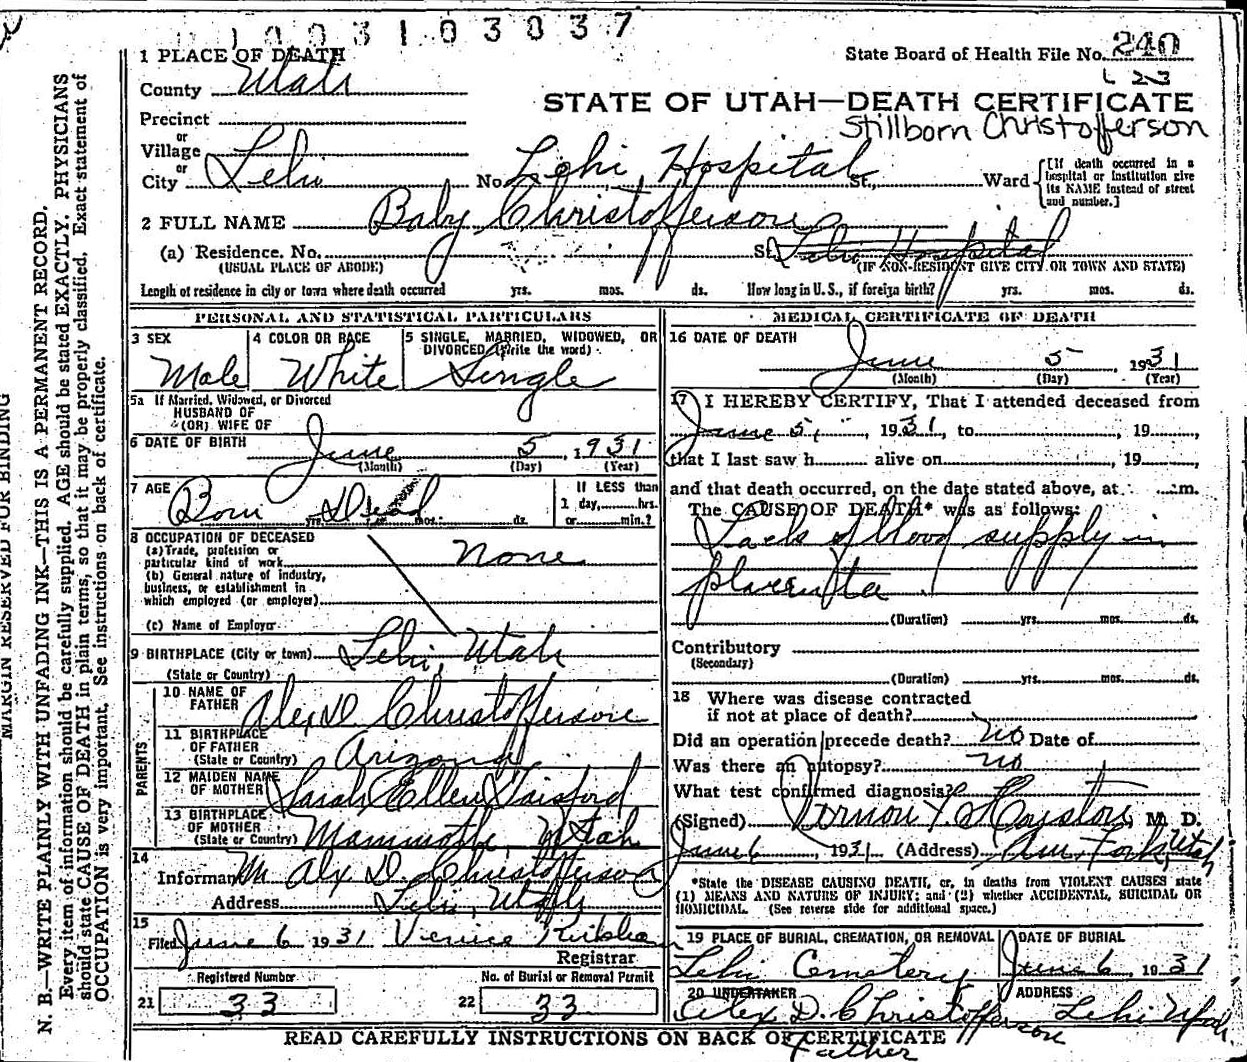 1003103037
1 PLACE OF DEATH
State Board of Health File No. 240
County Utah
L 23
STATE OF UTAH—DEATH CERTIFICATE
Precinct
Stillborn Christofferson
or
Village
or
City Lehi No. Lehi Hospital St., Ward
[If death occurred in a
hospital or institution give
its NAME instead of street
and number.]
2 FULL NAME Baby Christofferson
(a) Residence. No. St. Lehi Hospital
(USUAL PLACE OF ABODE) (IF NON-RESIDENT GIVE CITY OR TOWN AND STATE)
Length of residence in city or town where death occurred yrs. mos. ds. How long in U.S., if foreign birth? yrs. mos. ds.
PERSONAL AND STATISTICAL PARTICULARS
3 SEX 4 COLOR OR RACE 5 SINGLE, MARRIED, WIDOWED, OR
DIVORCED (Write the word)
Male White Single
5a If Married, Widowed, or Divorced
HUSBAND OF
(OR) WIFE OF
6 DATE OF BIRTH June 5, 1931
(Month) (Day) (Year)
7 AGE Born Dead
yrs. mos. ds.
If LESS than
1 day, hrs.
or min.?
8 OCCUPATION OF DECEASED
(a) Trade, profession or
particular kind of work None
(b) General nature of industry,
business, or establishment in
which employed (or employer)
(c) Name of Employer
9 BIRTHPLACE (City or town) Lehi, Utah
(State or Country)
PARENTS
10 NAME OF
FATHER Alex D Christofferson
11 BIRTHPLACE
OF FATHER
(State or Country) Arizona
12 MAIDEN NAME
OF MOTHER Sarah Ellen Gaisford
13 BIRTHPLACE
OF MOTHER
(State or Country) Mammoth, Utah
14
Informant Mr Alex D. Christofferson
Address Lehi, Utah
15
Filed June 6 1931 Venice
Registrar
Registered Number No. of Burial or Removal Permit
21 33 22 33
MEDICAL CERTIFICATE OF DEATH
16 DATE OF DEATH
June 5, 1931
(Month) (Day) (Year)
17 I HEREBY CERTIFY, That I attended deceased from
June 5, 1931, to , 19 ,
that I last saw h alive on , 19 ,
and that death occurred, on the date stated above, at m.
The CAUSE OF DEATH* was as follows:
Lack of blood supply in
placenta
(Duration) yrs. mos. ds.
Contributory
(Secondary)
(Duration) yrs. mos. ds.
18 Where was disease contracted
if not at place of death?
Did an operation precede death? No Date of
Was there an autopsy? no
What test confirmed diagnosis?
(Signed) Vernon F. Houston, M. D.
June 6, 1931 (Address) Am. Fork, Utah
*State the DISEASE CAUSING DEATH, or, in deaths from VIOLENT CAUSES state
(1) MEANS AND NATURE OF INJURY; and (2) whether ACCIDENTAL, SUICIDAL OR
HOMICIDAL. (See reverse side for additional space.)
19 PLACE OF BURIAL, CREMATION, OR REMOVAL DATE OF BURIAL
Lehi Cemetery June 6, 1931
20 UNDERTAKER ADDRESS
Alex D. Christofferson Lehi Utah
Father
READ CAREFULLY INSTRUCTIONS ON BACK OF CERTIFICATE
MARGIN RESERVED FOR BINDING
N. B.—WRITE PLAINLY WITH UNFADING INK—THIS IS A PERMANENT RECORD.
Every item of information should be carefully supplied. AGE should be stated EXACTLY. PHYSICIANS
should state CAUSE OF DEATH in plain terms, so that it may be properly classified. Exact statement of
OCCUPATION is very important. See instructions on back of certificate.